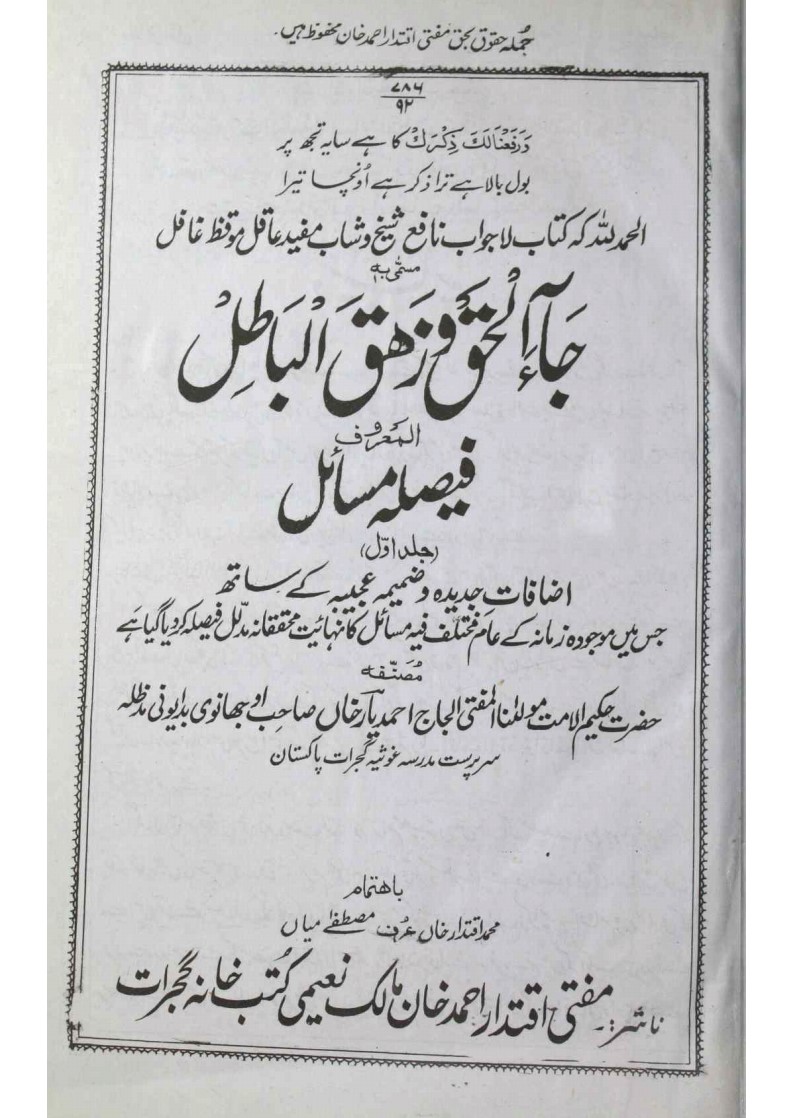 جُملہ حقوق بحق مفتی اقتدار احمد خان محفوظ ہیں۔
۷۸۶
۹۲
وَرَفَعْنَا لَكَ ذِكْرَكْ کا ہے سایہ تجھ پر
بول بالا ہے ترا ذکر ہے اُونچا تیرا
الحمد للہ کہ کتاب لاجواب نافع شیخ و شاب مفید عاقل موقظ غافل
مسمّٰی بہ
جَآءَ الْحَقُّ وَزَهَقَ الْبَاطِلْ
المعروف
فیصلہ مسائل
(جلد اوّل)
اضافات جدیدہ و ضمیمہ عجیبہ کے ساتھ
جس میں موجودہ زمانہ کے عام مختلف فیہ مسائل کا نہائیت محققانہ مدلّل فیصلہ کر دیا گیا ہے
مُصَنِّفہ
حضرت حکیم الامت مولٰنا المفتی الحاج احمد یار خاں صاحب اوجھانوی بدایونی مدظلہ
سرپرست مدرسہ غوثیہ گجرات پاکستان
باھتمام
محمد اقتدار خاں عرف مصطفےٰ میاں
ناشر:۔ مفتی اقتدار احمد خان مالک نعیمی کُتب خانہ گجرات